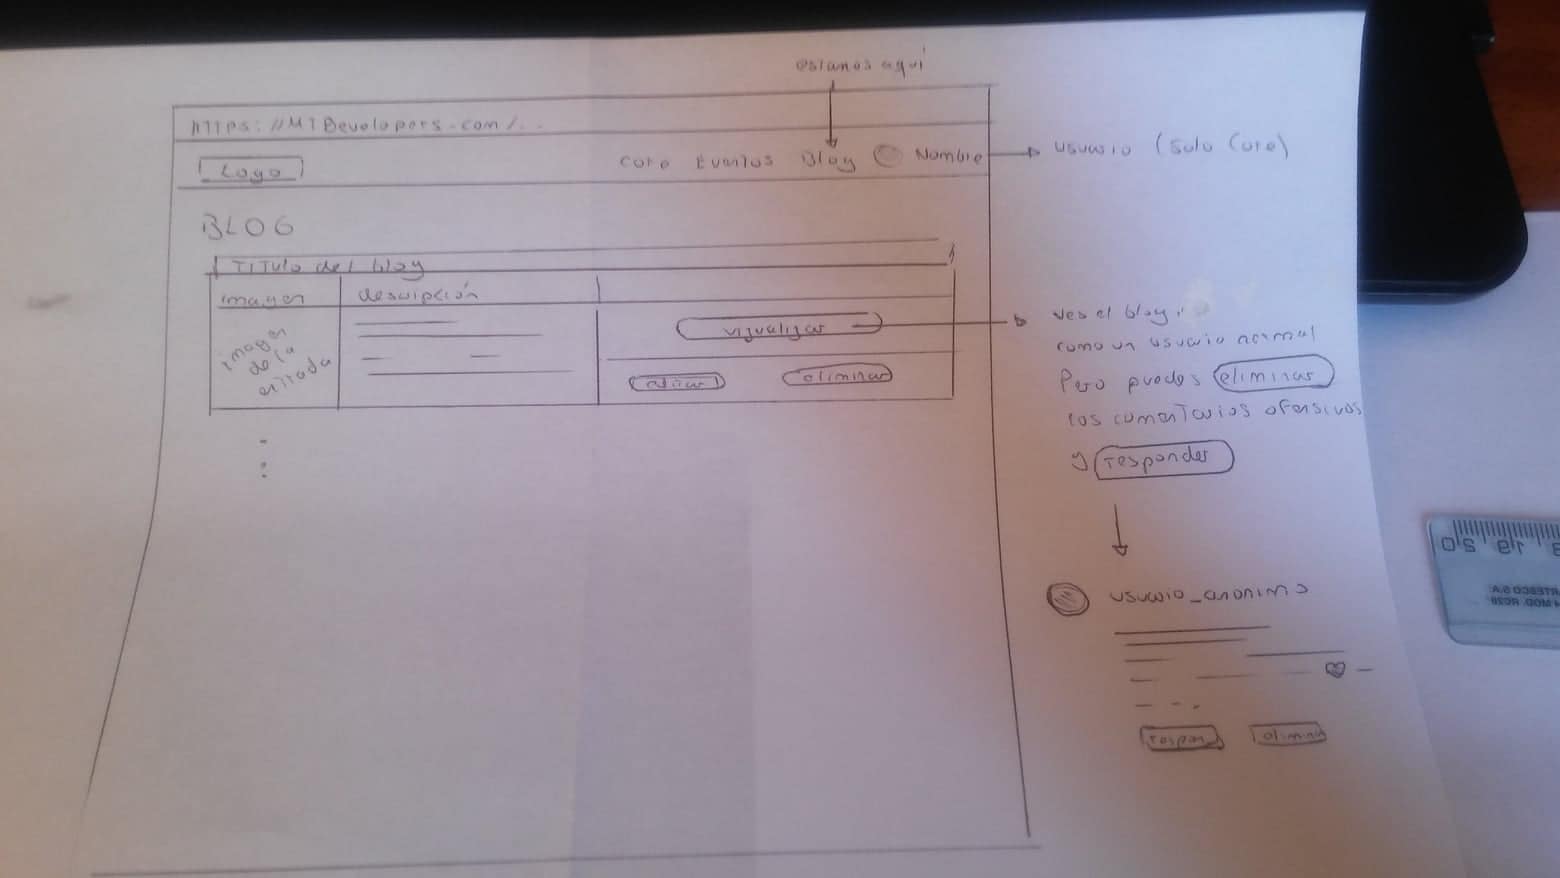 estamos aquí
https://MTDevelopers.com/...
Logo
Core Eventos Blog Nombre
usuario (solo Core)
BLOG
Titulo del blog
imagen
descripción
imagen
de la
entrada
vizualizar
editar
eliminar
ves el blog
como un usuario normal
Pero puedes eliminar
los comentarios ofensivos
y responder
usuario_anonimo
respon
eliminar